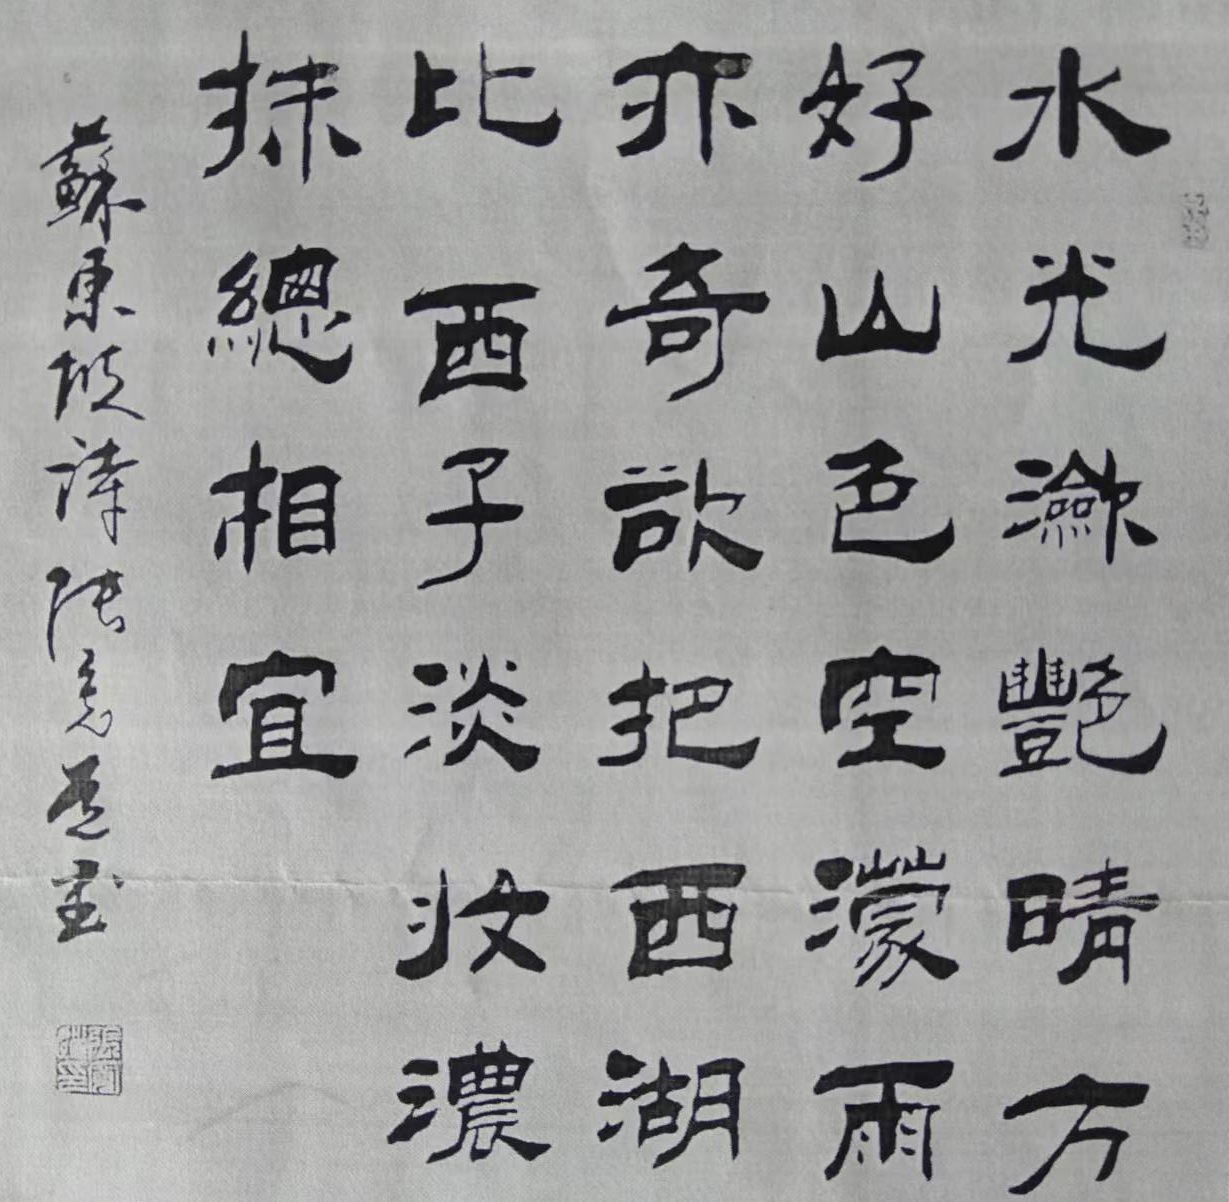 水光瀲豔晴方
好山色空濛雨
亦奇欲把西湖
比西子淡妝濃
抹總相宜
蘇東坡詩 張